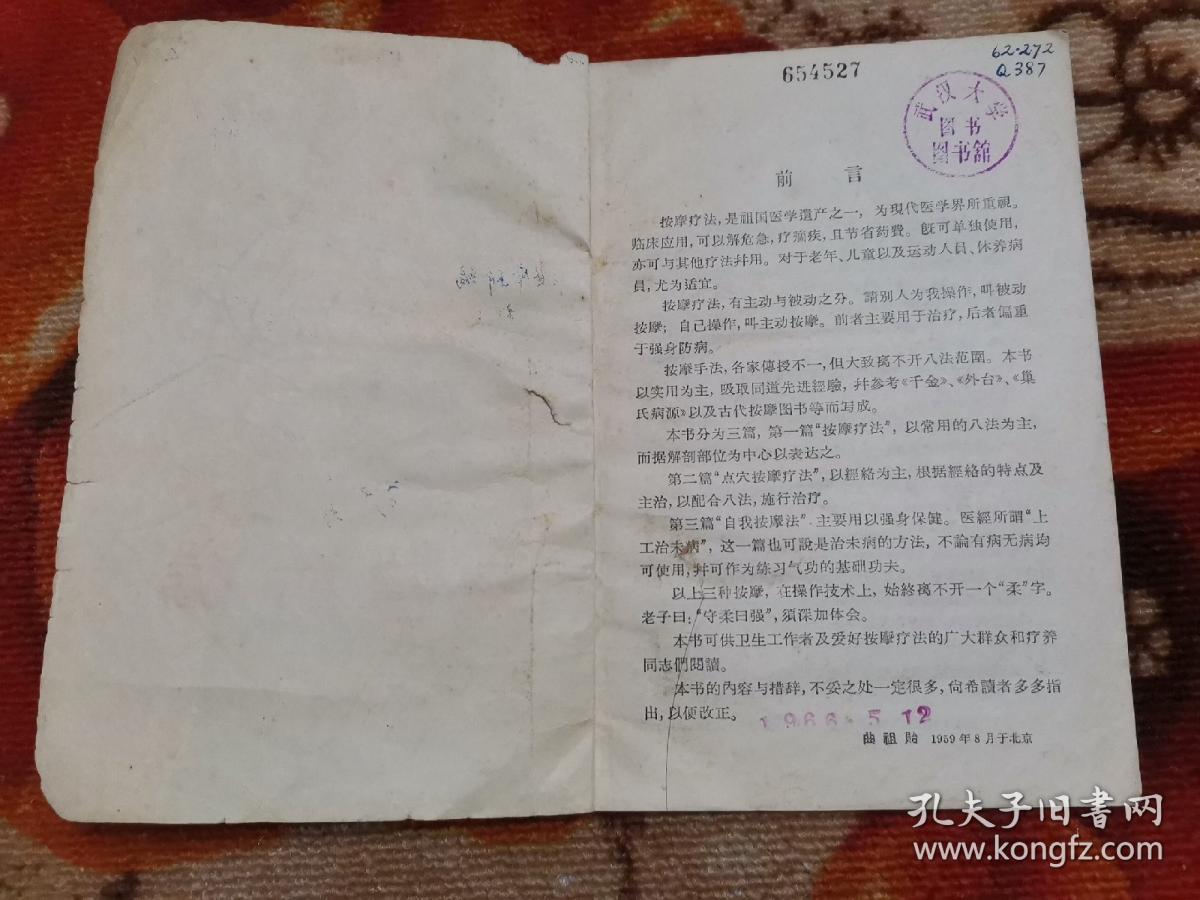 654527
62·272
Q387
武汉大学
图书
图书馆
前 言
按摩疗法，是祖国医学遺产之一，为現代医学界所重視。
临床应用，可以解危急，疗痼疾，且节省药費。既可单独使用，
亦可与其他疗法幷用。对于老年、儿童以及运动人員、休养病
員，尤为适宜。
按摩疗法，有主动与被动之分。請別人为我操作，叫被动
按摩；自己操作，叫主动按摩。前者主要用于治疗，后者偏重
于强身防病。
按摩手法，各家傳授不一，但大致离不开八法范圍。本书
以实用为主，吸取同道先进經驗，幷参考《千金》、《外台》、《巢
氏病源》以及古代按摩图书等而写成。
本书分为三篇，第一篇“按摩疗法”，以常用的八法为主，
而据解剖部位为中心以表达之。
第二篇“点穴按摩疗法”，以經絡为主，根据經絡的特点及
主治，以配合八法，施行治疗。
第三篇“自我按摩法”，主要用以强身保健。医經所謂“上
工治未病”，这一篇也可說是治未病的方法，不論有病无病均
可使用，幷可作为练习气功的基础功夫。
以上三种按摩，在操作技术上，始終离不开一个“柔”字。
老子曰：“守柔曰强”，須深加体会。
本书可供卫生工作者及爱好按摩疗法的广大群众和疗养
同志們閱讀。
本书的內容与措辞，不妥之处一定很多，尙希讀者多多指
出，以便改正。
1966.5.12
曲祖貽 1959年8月于北京
孔夫子旧书网
www.kongfz.com